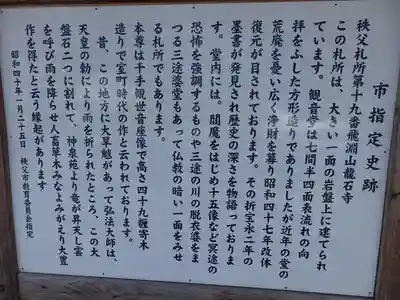 市指定史跡
秩父札所第十九番飛淵山龍石寺
この札所は、大きい一面の岩盤上に建てられ
ています。観音堂は七間半四面表流れの向
拝をふした方形造りでありましたが近年の堂の
荒廃を憂い広く浄財を募り昭和四十七年改体
復元が目されております。その折宝永二年の
墨書が発見され歴史の深さを物語っておりま
す。堂内には、閻魔をはじめ十五像など冥途の
恐怖を強調するものや三途の川の脱衣婆をま
つる三途婆堂もあって仏教の暗い一面をみせ
る札所でもあります。
本尊は千手観世音座像で高さ四十九糎寄木
造りで室町時代の作と云われております。
昔、この地方に大旱魃があって弘法大師は、
天皇の勅により雨を祈られたところ、この大
盤石二つに割れて、神泉苑より竜が昇天し雲
を呼び雨を降らせ人畜草木みなよみがえり大豊
作を得たと云う縁起があります
昭和四十年一月二十五日 秩父市教育委員会指定